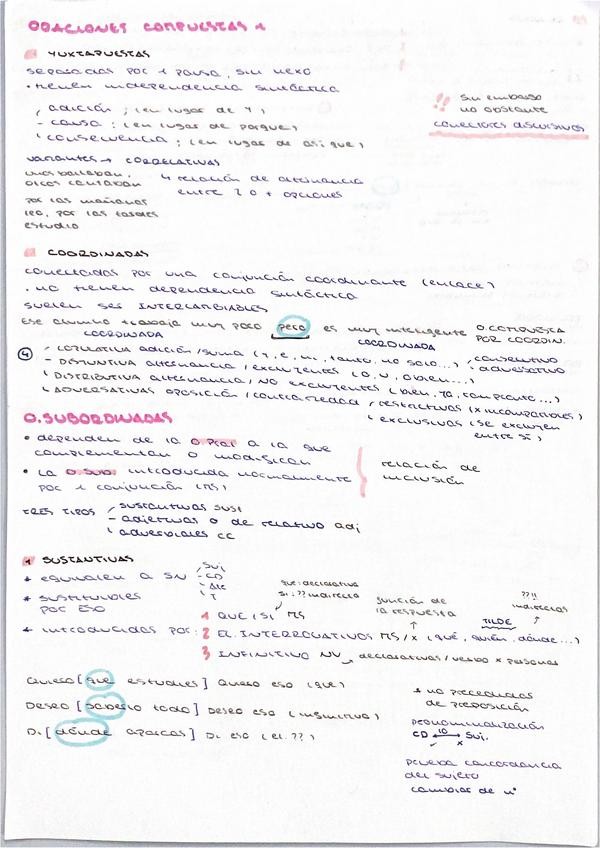 ORACIONES COMPUESTAS 1
YUXTAPUESTAS
separadas por 1 pausa, sin nexo
· tienen independencia sintáctica
- adición ; (en lugar de y)
- causa : (en lugar de porque)
- consecuencia ; (en lugar de así que)
!! sin embargo
no obstante
conectores discursivos
variantes → CORRELATIVAS
unos bailaban,
otros cantaban
↳ relación de alternancia
entre 2 o + opciones
por las mañanas
leo, por las tardes
estudio
COORDINADAS
conectadas por una conjunción coordinante (enlace)
· no tienen dependencia sintáctica
suelen ser INTERCAMBIABLES
Ese alumno trabaja muy poco pero es muy inteligente
COORDINADA COORDINADA
O. COMPUESTA
POR COORDIN.
4
COPULATIVA adición/suma (y, e, ni, tanto, no solo...)
DISYUNTIVA alternancia/excluyentes (o, u, o bien...)
DISTRIBUTIVA alternancia/NO excluyentes (bien, ya,...)
ADVERSATIVAS oposición/contrariedad
consecutivo
adversativo
restrictivas (x incomparables)
exclusivas (se excluyen
entre sí)
O. SUBORDINADAS
· dependen de la O. Pral a la que
complementan o modifican
· La O. Sub. introducida normalmente
por 1 conjunción (NS)
relación de
inclusión
TRES TIPOS
sustantivas SUST
- adjetivas o de relativo adj
adverbiales CC
1 SUSTANTIVAS
* equivalen a SN
Suj
- CD
T
* sustituibles
por ESO
* introducidas por:
que: declarativa
si: ?? indirecta
1 QUE/SI NS
función de
la respuesta
TILDE
??!!
indirectas
2 EL INTERROGATIVOS NS/x (qué, quién, dónde...)
3 INFINITIVO NV → declarativas/verbo x personas
Quiero [que estudies] Quiero eso (que)
Deseo [saberlo todo] Deseo eso (infinitivo)
Di [dónde aparcas] Di eso (el. ??)
* no precedidas
de preposición
pronominalización
CD lo ↔ Suj.
✓ x
prueba concordancia
del sujeto
cambiar de nº